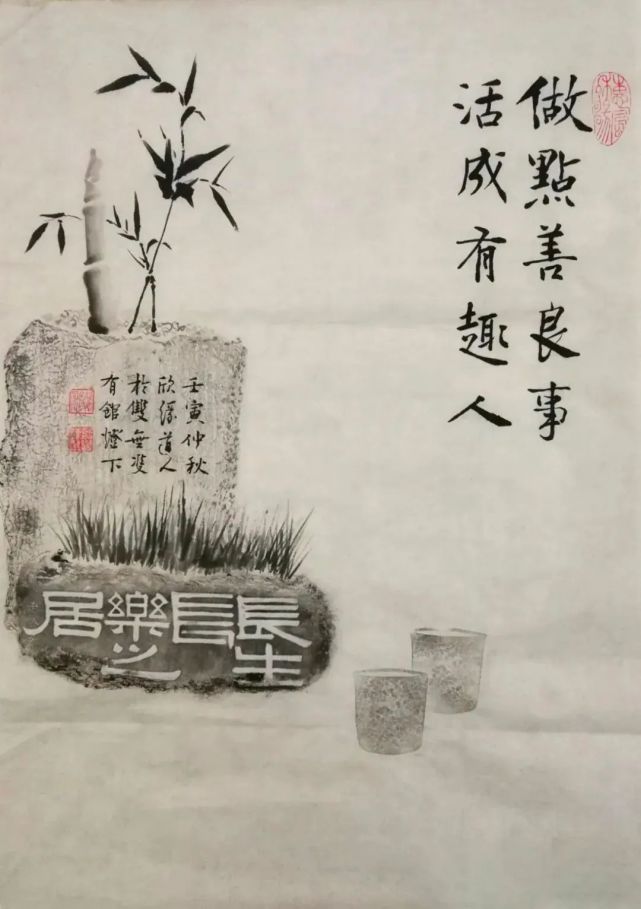 做點善良事
活成有趣人
壬寅仲秋
欣緣道人
於雙無
有館燈下
長生
長
樂之
居